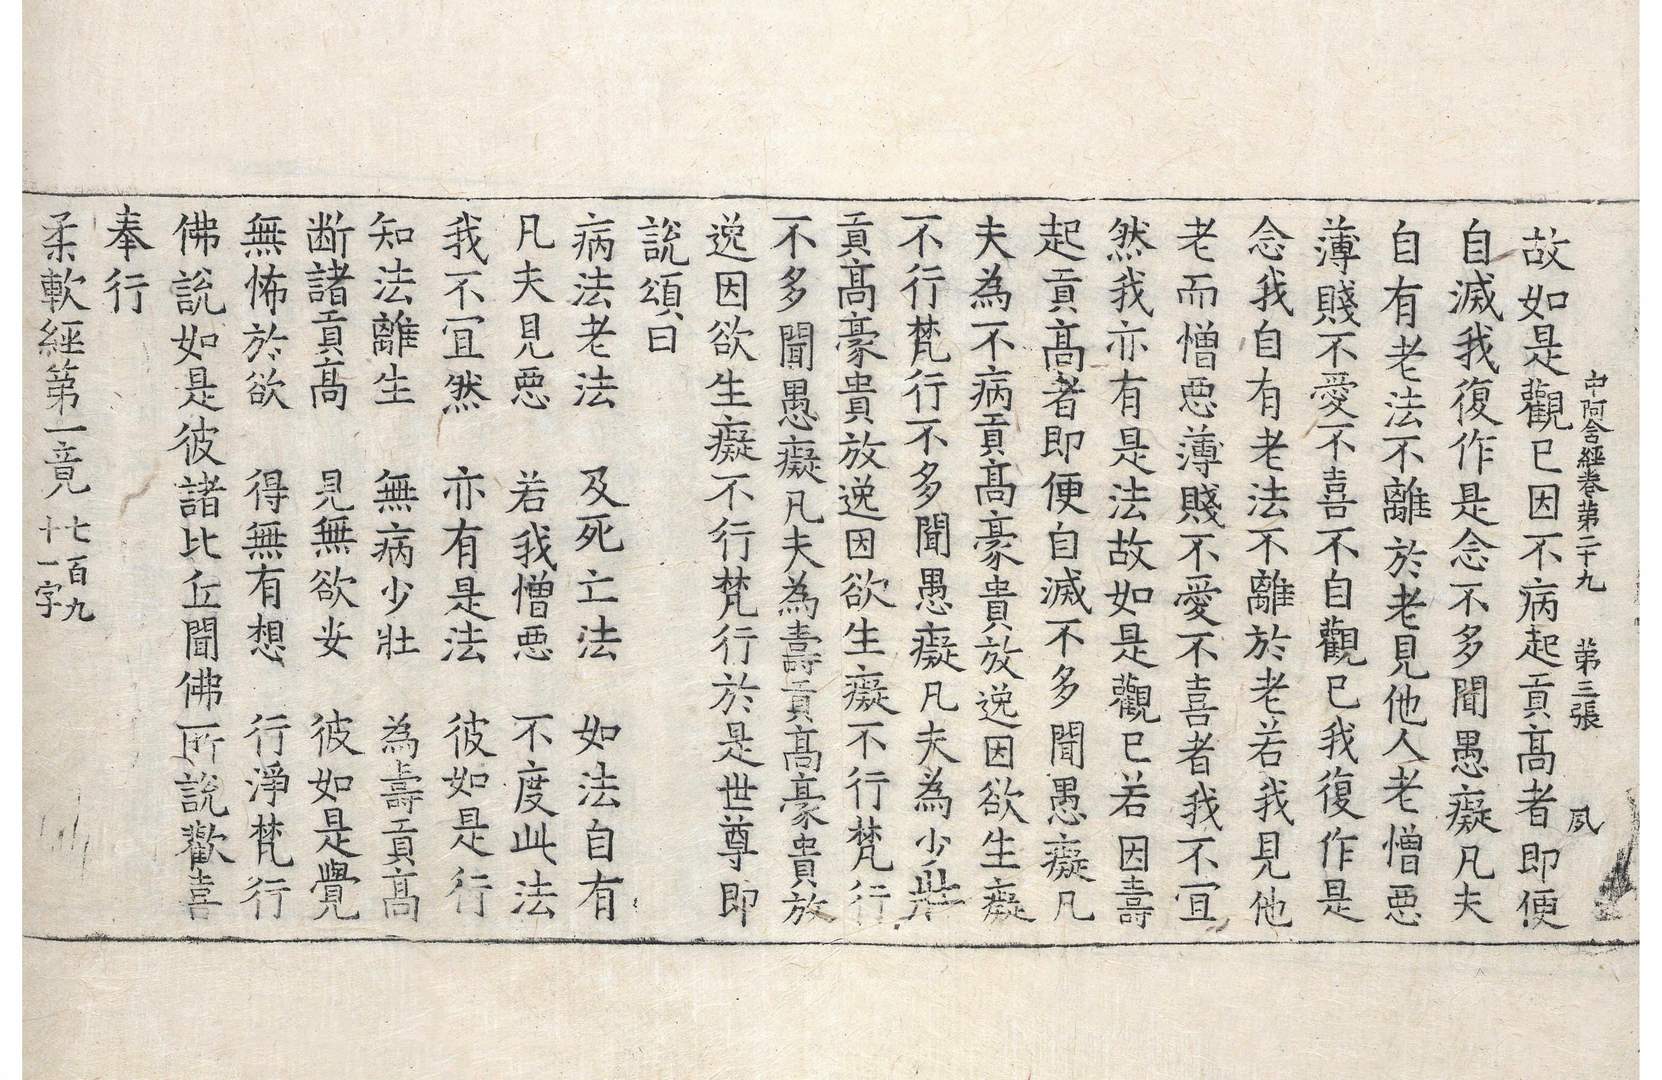 中阿含經卷第二十九　第三張　夙
故如是觀已因不病起貢髙者即便
自滅我復作是念不多聞愚癡凡夫
自有老法不離於老見他人老憎惡
薄賤不愛不喜不自觀已我復作是
念我自有老法不離於老若我見他
老而憎惡薄賤不愛不喜者我不宜
然我亦有是法故如是觀已若因壽
起貢髙者即便自滅不多聞愚癡凡
夫為不病貢髙豪貴放逸因欲生癡
不行梵行不多聞愚癡凡夫為少壯
貢髙豪貴放逸因欲生癡不行梵行
不多聞愚癡凡夫為壽貢髙豪貴放
逸因欲生癡不行梵行於是世尊即
說頌曰
病法老法　及死亡法　如法自有
凡夫見惡　若我憎惡　不度此法
我不宜然　亦有是法　彼如是行
知法離生　無病少壯　為壽貢髙
断諸貢髙　見無欲安　彼如是覺
無怖於欲　得無有想　行淨梵行
佛說如是彼諸比丘聞佛所說歡喜
奉行
柔軟經第一竟　七百九十一字